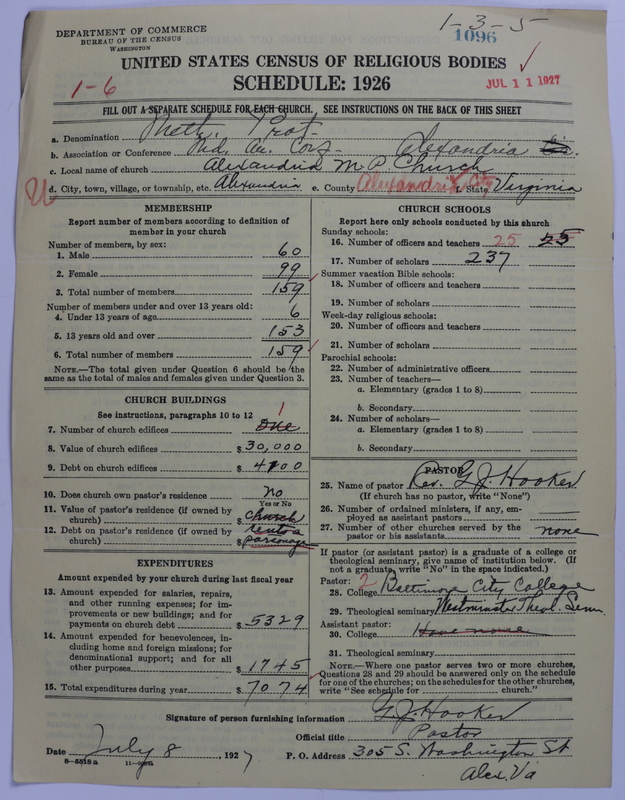 1-3-5
DEPARTMENT OF COMMERCE
BUREAU OF THE CENSUS
WASHINGTON
1096
UNITED STATES CENSUS OF RELIGIOUS BODIES
1-6
SCHEDULE: 1926
JUL 11 1927
FILL OUT A SEPARATE SCHEDULE FOR EACH CHURCH. SEE INSTRUCTIONS ON THE BACK OF THIS SHEET
a. Denomination Meth. Prot.
b. Association or Conference Md. An. Con. Alexandria
c. Local name of church Alexandria M P Church
d. City, town, village, or township, etc. Alexandria e. County Alexandria City f. State Virginia
MEMBERSHIP
Report number of members according to definition of
member in your church
Number of members, by sex:
1. Male 60
2. Female 99
3. Total number of members 159
Number of members under and over 13 years old:
4. Under 13 years of age 6
5. 13 years old and over 153
6. Total number of members 159
NOTE.—The total given under Question 6 should be the
same as the total of males and females given under Question 3.
CHURCH BUILDINGS
See instructions, paragraphs 10 to 12
1
7. Number of church edifices One
8. Value of church edifices $ 30,000
9. Debt on church edifices $ 4100
10. Does church own pastor's residence No
Yes or No
11. Value of pastor's residence (if owned by
church) $ church
12. Debt on pastor's residence (if owned by rents a
church) $ parsonage
EXPENDITURES
Amount expended by your church during last fiscal year
13. Amount expended for salaries, repairs,
and other running expenses; for im-
provements or new buildings; and for
payments on church debt $ 5329
14. Amount expended for benevolences, in-
cluding home and foreign missions; for
denominational support; and for all
other purposes $ 1745
15. Total expenditures during year $ 7074
CHURCH SCHOOLS
Report here only schools conducted by this church
Sunday schools:
16. Number of officers and teachers 25 25
17. Number of scholars 237
Summer vacation Bible schools:
18. Number of officers and teachers
19. Number of scholars
Week-day religious schools:
20. Number of officers and teachers
21. Number of scholars
Parochial schools:
22. Number of administrative officers
23. Number of teachers—
a. Elementary (grades 1 to 8)
b. Secondary
24. Number of scholars—
a. Elementary (grades 1 to 8)
b. Secondary
PASTOR
25. Name of pastor Rev. G. J. Hooker
(If church has no pastor, write "None")
26. Number of ordained ministers, if any, em-
ployed as assistant pastors
27. Number of other churches served by the
pastor or his assistants none
If pastor (or assistant pastor) is a graduate of a college or
theological seminary, give name of institution below. (If
not a graduate, write "No" in the space indicated.)
Pastor: 2
28. College Baltimore City College
29. Theological seminary Westminster Theol. Sem.
Assistant pastor:
30. College Have none
31. Theological seminary
NOTE.—Where one pastor serves two or more churches,
Questions 28 and 29 should be answered only on the schedule
for one of the churches; on the schedules for the other churches,
write "See schedule for church."
Signature of person furnishing information G J Hooker
Official title Pastor
Date July 8, 1927 P. O. Address 305 S. Washington St
8-5518a Alex. Va